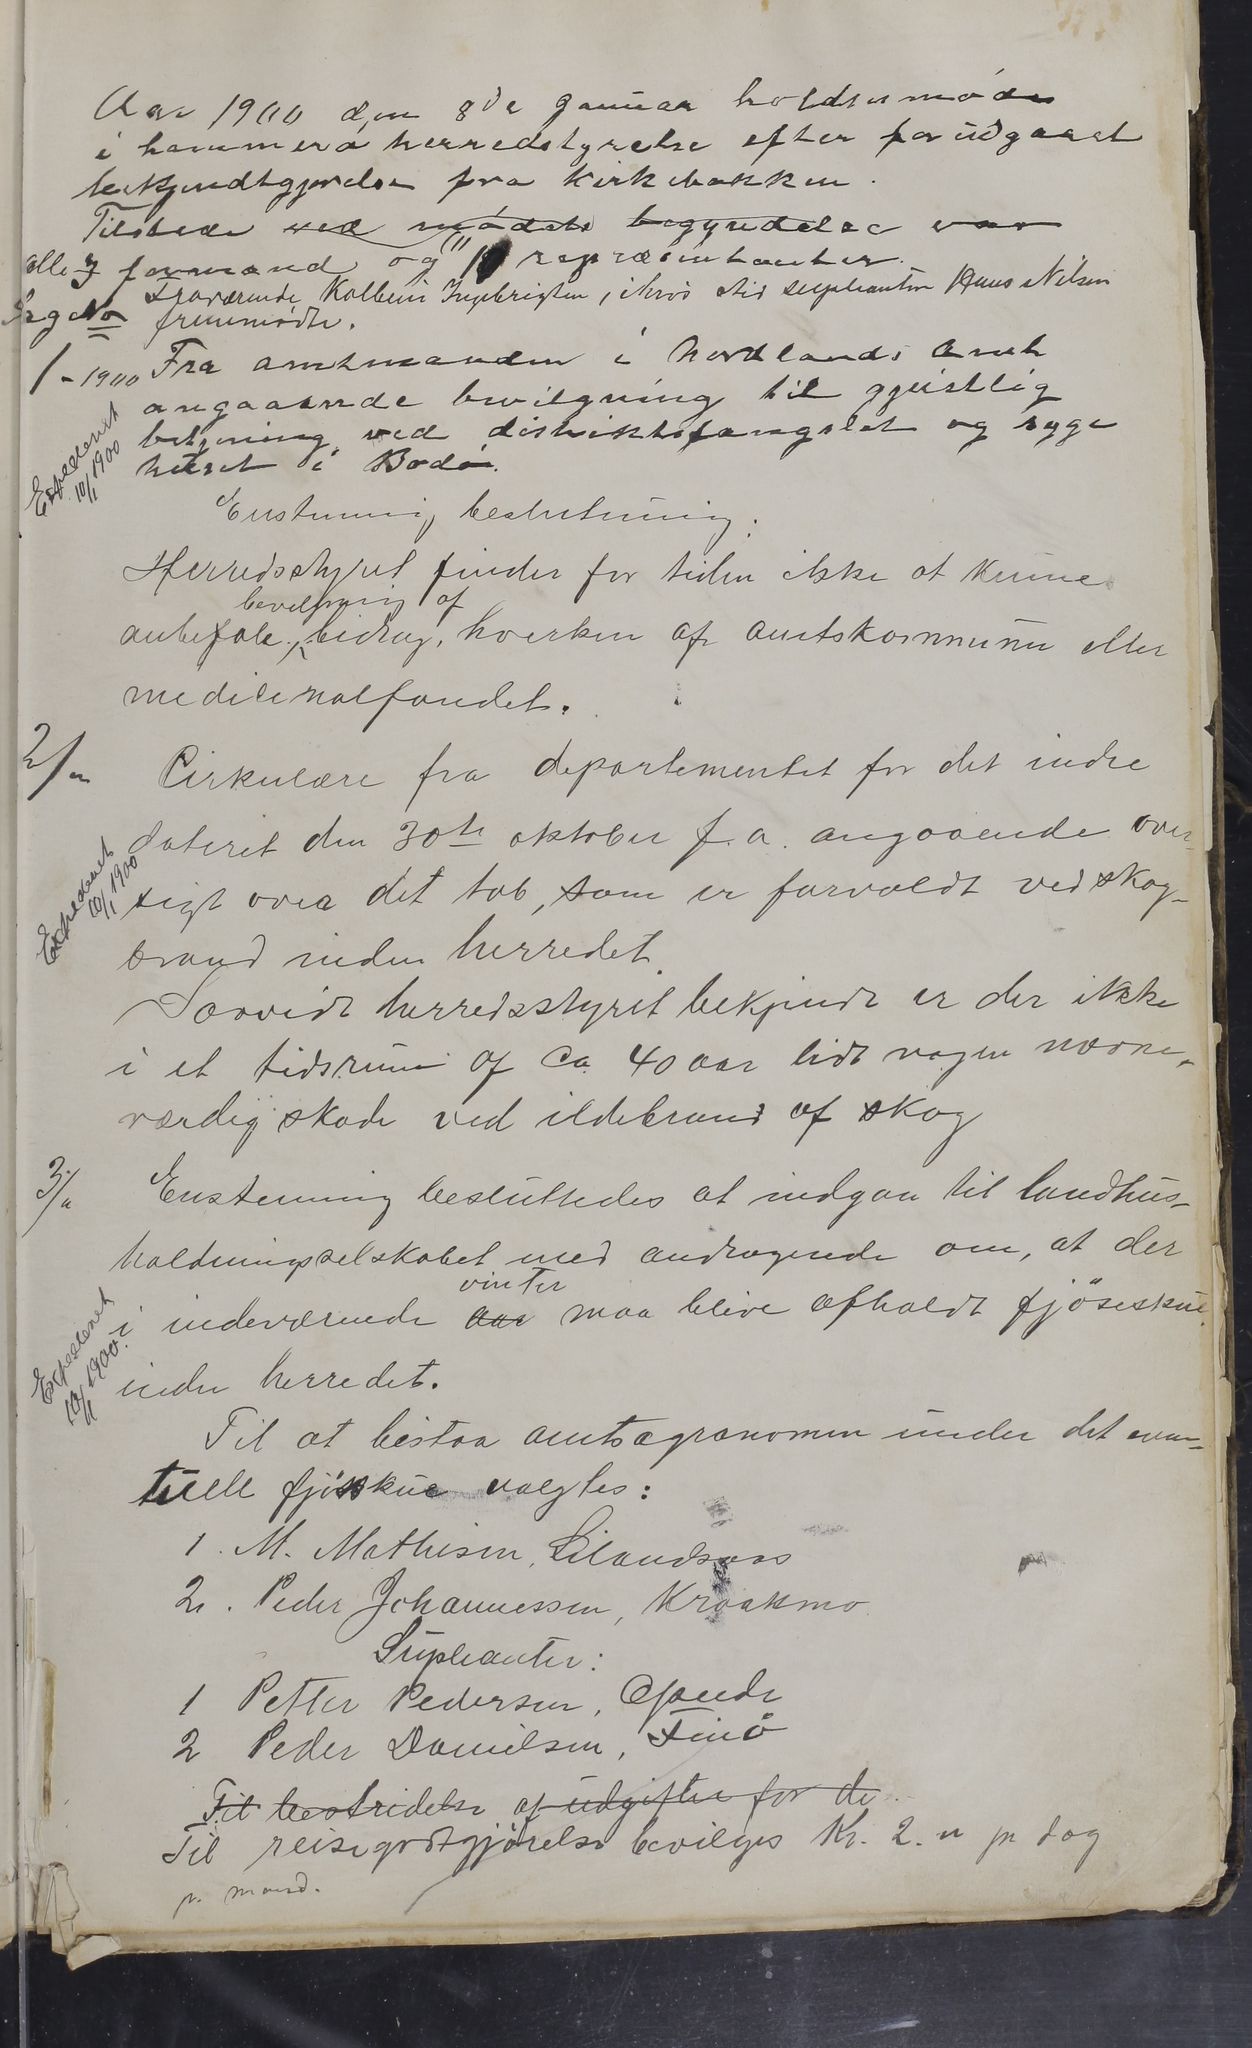 Aar 1900 den 8de januar holdtes møde
i hammerø herredstyrelse efter forudgaaet
bekjendtgjørelse fra kirkebakken.
Tilstede ved mødets begyndelse var
alle 7 formænd og 11 repræsentanter.
Fraværende Kolbein Ingebrigtsen, i hvis sted supleanten Hans Nilsen
Sag No fremmødte.
1 - 1900 Fra amtmanden i Nordlands Amt
angaaende bevilgning til gjeistlig
betjening ved distriktsfængslet og syge
huset i Bodø.
Expederet
10/1 1900
Enstemmig beslutning:
Herredsstyret finder for tiden ikke at kunne
bevilgning af
anbefale, bidrag, hverken af amtskommunen eller
medicinalfondet.
2/" Cirkulære fra departementet for det indre
dateret den 30te oktober f. a. angaaende over-
sigt over det tab, som er forvoldt ved skog-
brand inden herredet.
Expederet
10/1 1900
Saavidt herredsstyret bekjendt er der ikke
i et tidsrum af ca 40 aar lidt nogen nævne-
værdig skade ved ildebrand af skog
3/" Enstemmig besluttedes at indgaa til landhus-
holdningsselskabet med andragende om, at der
vinter
i indeværende aar maa blive afholdt fjösskue
inden herredet.
Expederet
10/1 1900.
Til at bistaa amtsagronomen under det even-
tuelle fjösskue valgtes:
1. M. Mathisen, Lilandsaas
2. Peder Johannessen, Kraakmo
Supleanter:
1 Petter Pedersen,
2 Peder Danielsen, Finö
Til bestridelse af udgifter for de
Til reisegodtgjörelse bevilges Kr. 2. " pr dag
pr. mand.